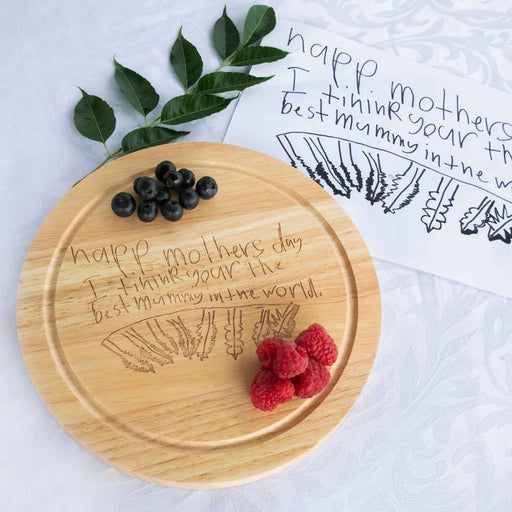 happ mothers
I tinink your the
best mummy in the w
happ mothers day
I tinink your the
best mummy in the world.